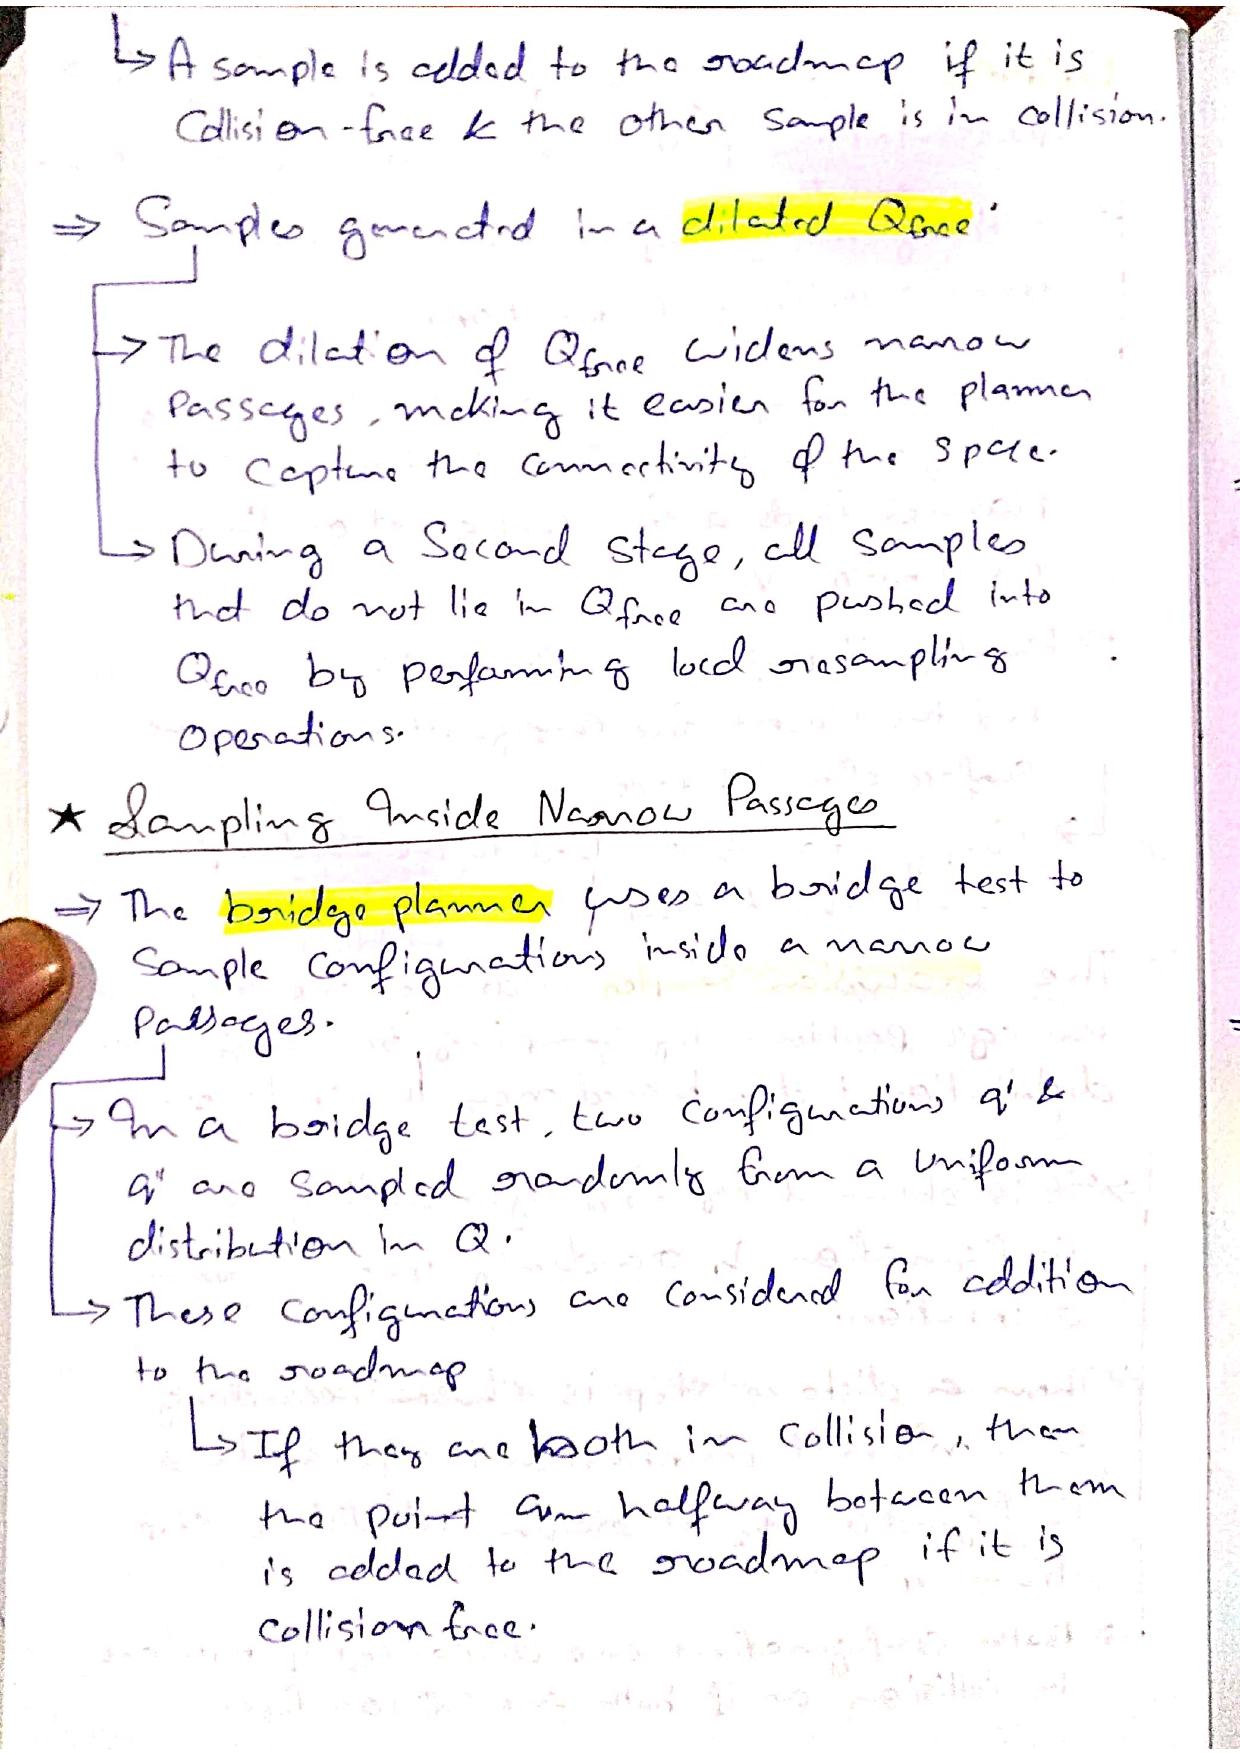 ↳ A sample is added to the roadmap if it is
Collision-free & the other sample is in collision.
⇒ Samples generated in a dilated Qfree:
→ The dilation of Qfree widens narrow
Passages, making it easier for the planner
to capture the connectivity of the space.
→ During a Second Stage, all samples
that do not lie in Qfree are pushed into
Qfree by performing local resampling
Operations.
★ Sampling Inside Narrow Passages
⇒ The bridge planner uses a bridge test to
Sample configurations inside a narrow
Passages.
→ In a bridge test, two configurations q' &
q" are sampled randomly from a uniform
distribution in Q.
→ These configurations are considered for addition
to the roadmap
↳ If they are both in collision, then
the point qm halfway between them
is added to the roadmap if it is
Collision free.